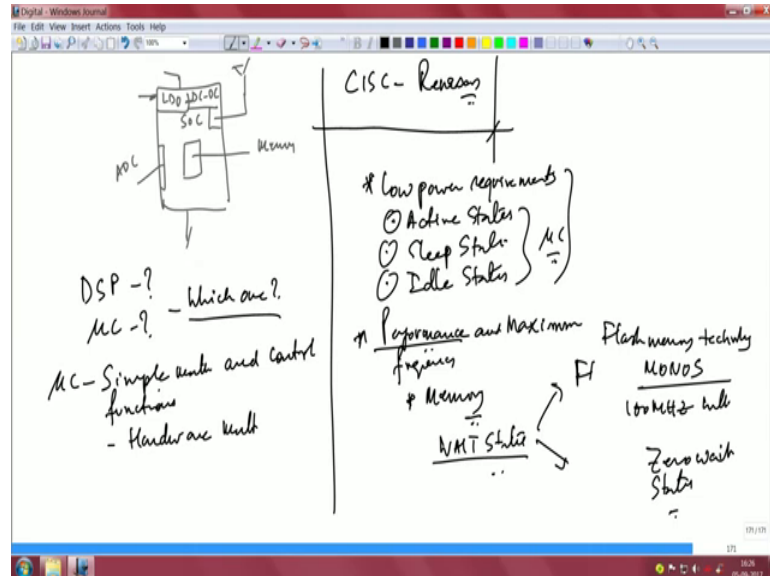 Digital - Windows Journal
File Edit View Insert Actions Tools Help
100%
LDO DC-DC
SOC
ADC
Memory
DSP - ?
MC - ?
- Which one?
MC - Simple math and Control
functions
- Hardware Mult
CISC - Renesas
* Low power requirements
Active States
Sleep State
Idle States
MC
* Performance and Maximum
* Memory
WAIT State
Fl
Flash memory
MONOS
100MHZ
Zero wait
States
171/171
171
16:26
05-09-2017